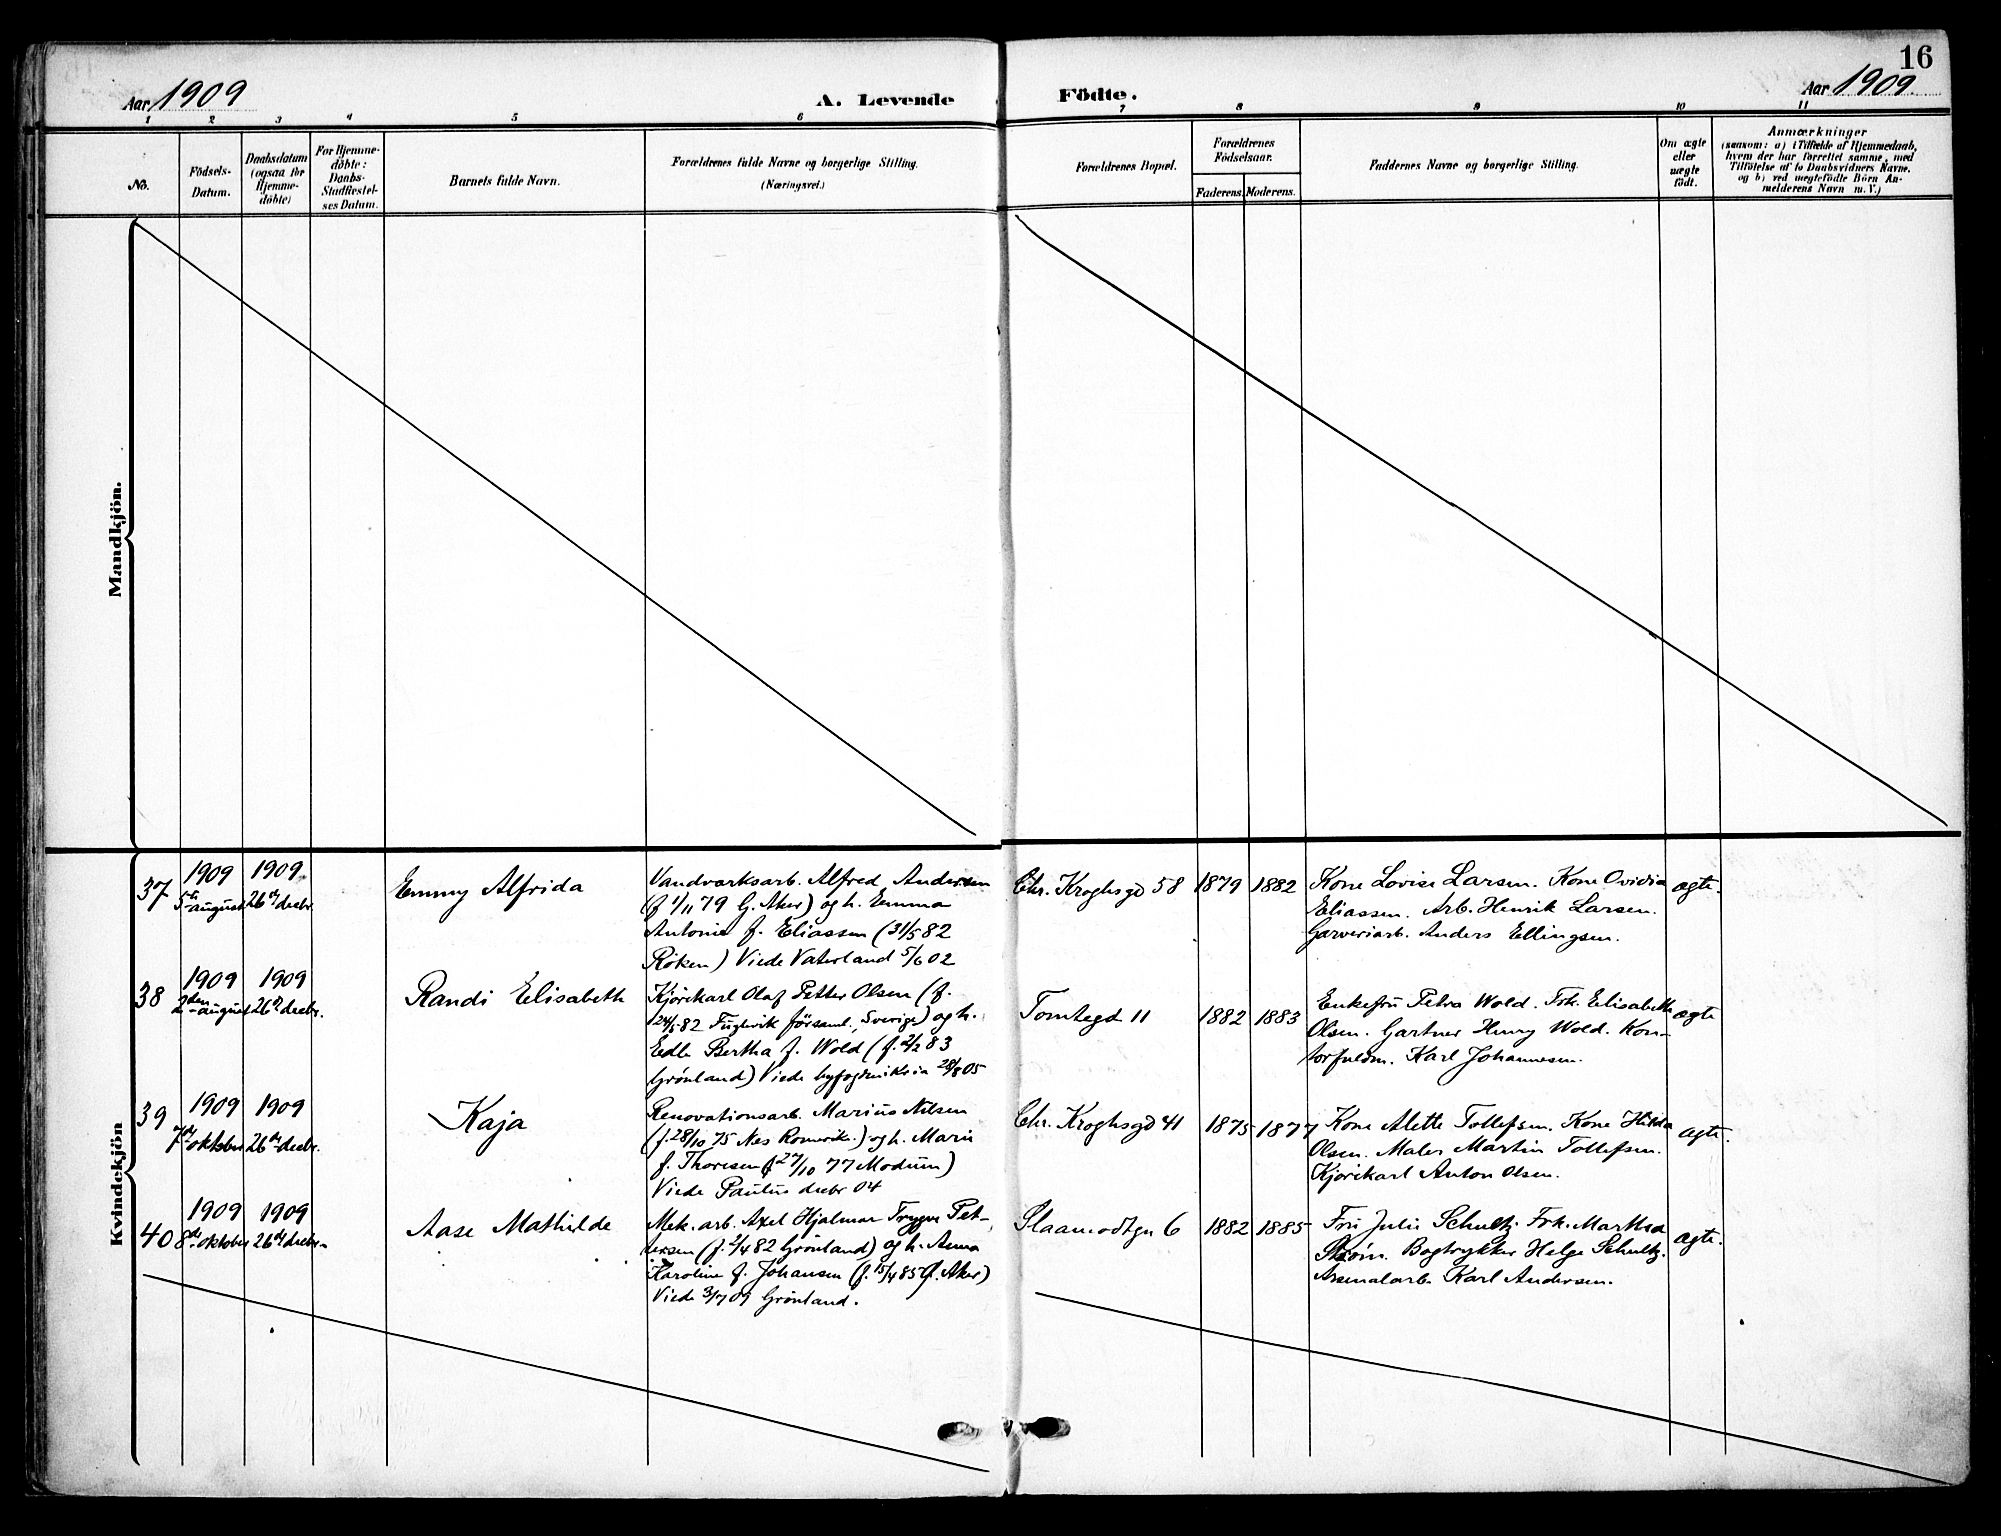 16
Aar 1909
A. Levende
Födte.
Aar 1909.
1 2 3 4 5 6 7 8 9 10 11
No.
Födsels-
Datum.
Daabsdatum
(ogsaa for
Hjemme-
döbte)
For Hjemme-
döbte:
Daabs-
Stadfæstel-
ses Datum.
Barnets fulde Navn.
Forældrenes fulde Navne og borgerlige Stilling.
(Næringsvei.)
Forældrenes Bopæl.
Forældrenes
Födselsaar.
Faderens. Moderens.
Faddernes Navne og borgerlige Stilling.
Om ægte
eller
uægte
födt.
Anmærkninger
(saasom: a) i Tilfælde af Hjemmedaab,
hvem der har forrettet samme, med
Tilföielse af to Daabsvidners Navne.
og b) ved uægtefödte Börn An-
melderens Navn m. V.)
Mandkjön.
Kvindekjön
37
1909
5te august
1909
26de decbr.
Emmy Alfrida
Vandværksarb. Alfred Andersen
(f 1/11 79 G. Aker) og h. Emma
Antonie f. Eliassen (31/5 82
Röken) Viede Vaterland 5/6 02
Chr. Kroghsgd 58
1879
1882
Kone Lovise Larsen. Kone Ovidia
Eliassen. Arb. Henrik Larsen.
Garveriarb. Anders Ellingsen.
ægte.
38
1909
2den august
1909
26de decbr.
Randi Elisabeth
Kjörekarl Olaf Petter Olsen (f.
24/5 82 Fuglevik församl., Sverige) og h.
Edle Bertha f. Wold (f. 2/2 83
Grönland) Viede byfogden Kria 28/8 05
Tomtegd 11
1882
1883
Enkefru Petra Wold. Frk. Elisabeth
Olsen. Gartner Henry Wold. Kon-
torfuldm. Karl Johannesen.
ægte
39
1909
7de oktober
1909
26de decbr.
Kaja
Renovationsarb. Marius Nilsen
(f. 28/10 75 Nes Romerike.) og h. Marie
f. Thoresen f 27/10 77 Modum)
Viede Paulus decbr 04
Chr. Kroghsgd 41
1875
1877
Kone Alette Tollefsen. Kone Hilda
Olsen. Maler Martin Tollefsen.
Kjörekarl Anton Olsen.
ægte.
40
1909
8de oktober
1909
26de decbr.
Aase Mathilde
Mek. arb. Axel Hjalmar Trygve Pet-
tersen (f. 2/4 82 Grönland) og h. Anna
Karoline f. Johansen (f. 15/4 85 G. Aker)
Viede 3/7 09 Grönland.
Slaamodtgn 6
1882
1885
Fru Julie Schultz. Frk. Marthea
Ström. Bogtrykker Helge Schultz.
Arsenalarb. Karl Andersen.
ægte.